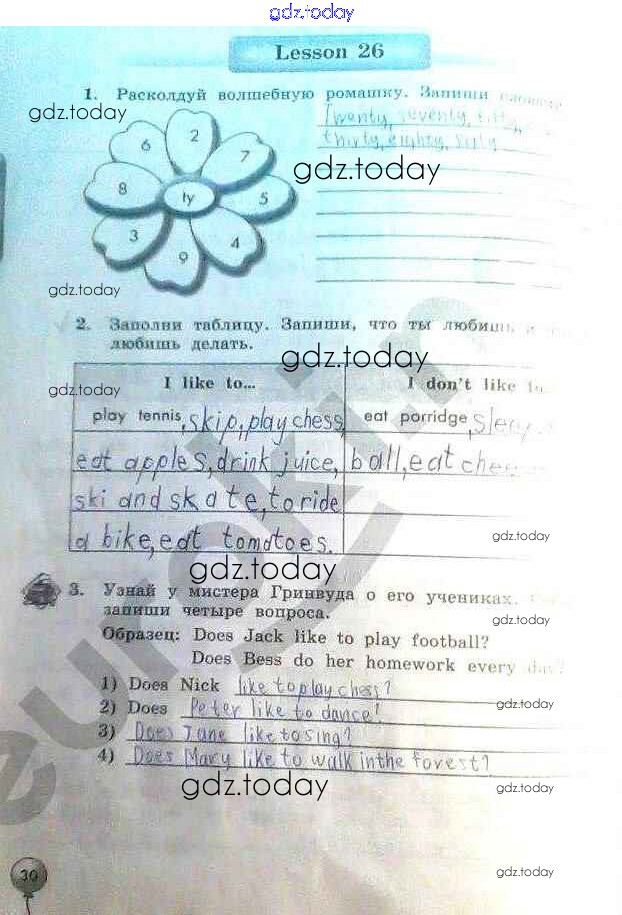 gdz.today
Lesson 26
1. Расколдуй волшебную ромашку. Запиши
gdz.today
Twenty, seventy,
thirty, eighty, sixty
6 2 7
gdz.today
8 ty 5
3 9 4
gdz.today
2. Заполни таблицу. Запиши, что ты любишь и
любишь делать.
gdz.today
gdz.today
I like to... I don't like to
play tennis, skip, play chess, eat porridge, sleep
eat apples, drink juice, ball, eat
ski and skate, to ride
a bike, eat tomatoes.
gdz.today
gdz.today
3. Узнай у мистера Гринвуда о его учениках.
запиши четыре вопроса.
gdz.today
Образец: Does Jack like to play football?
Does Bess do her homework every day?
1) Does Nick like to play chess?
2) Does Peter like to dance?
gdz.today
3) Does Jane like to sing?
4) Does Mary like to walk in the forest?
gdz.today
gdz.today
30
gdz.today